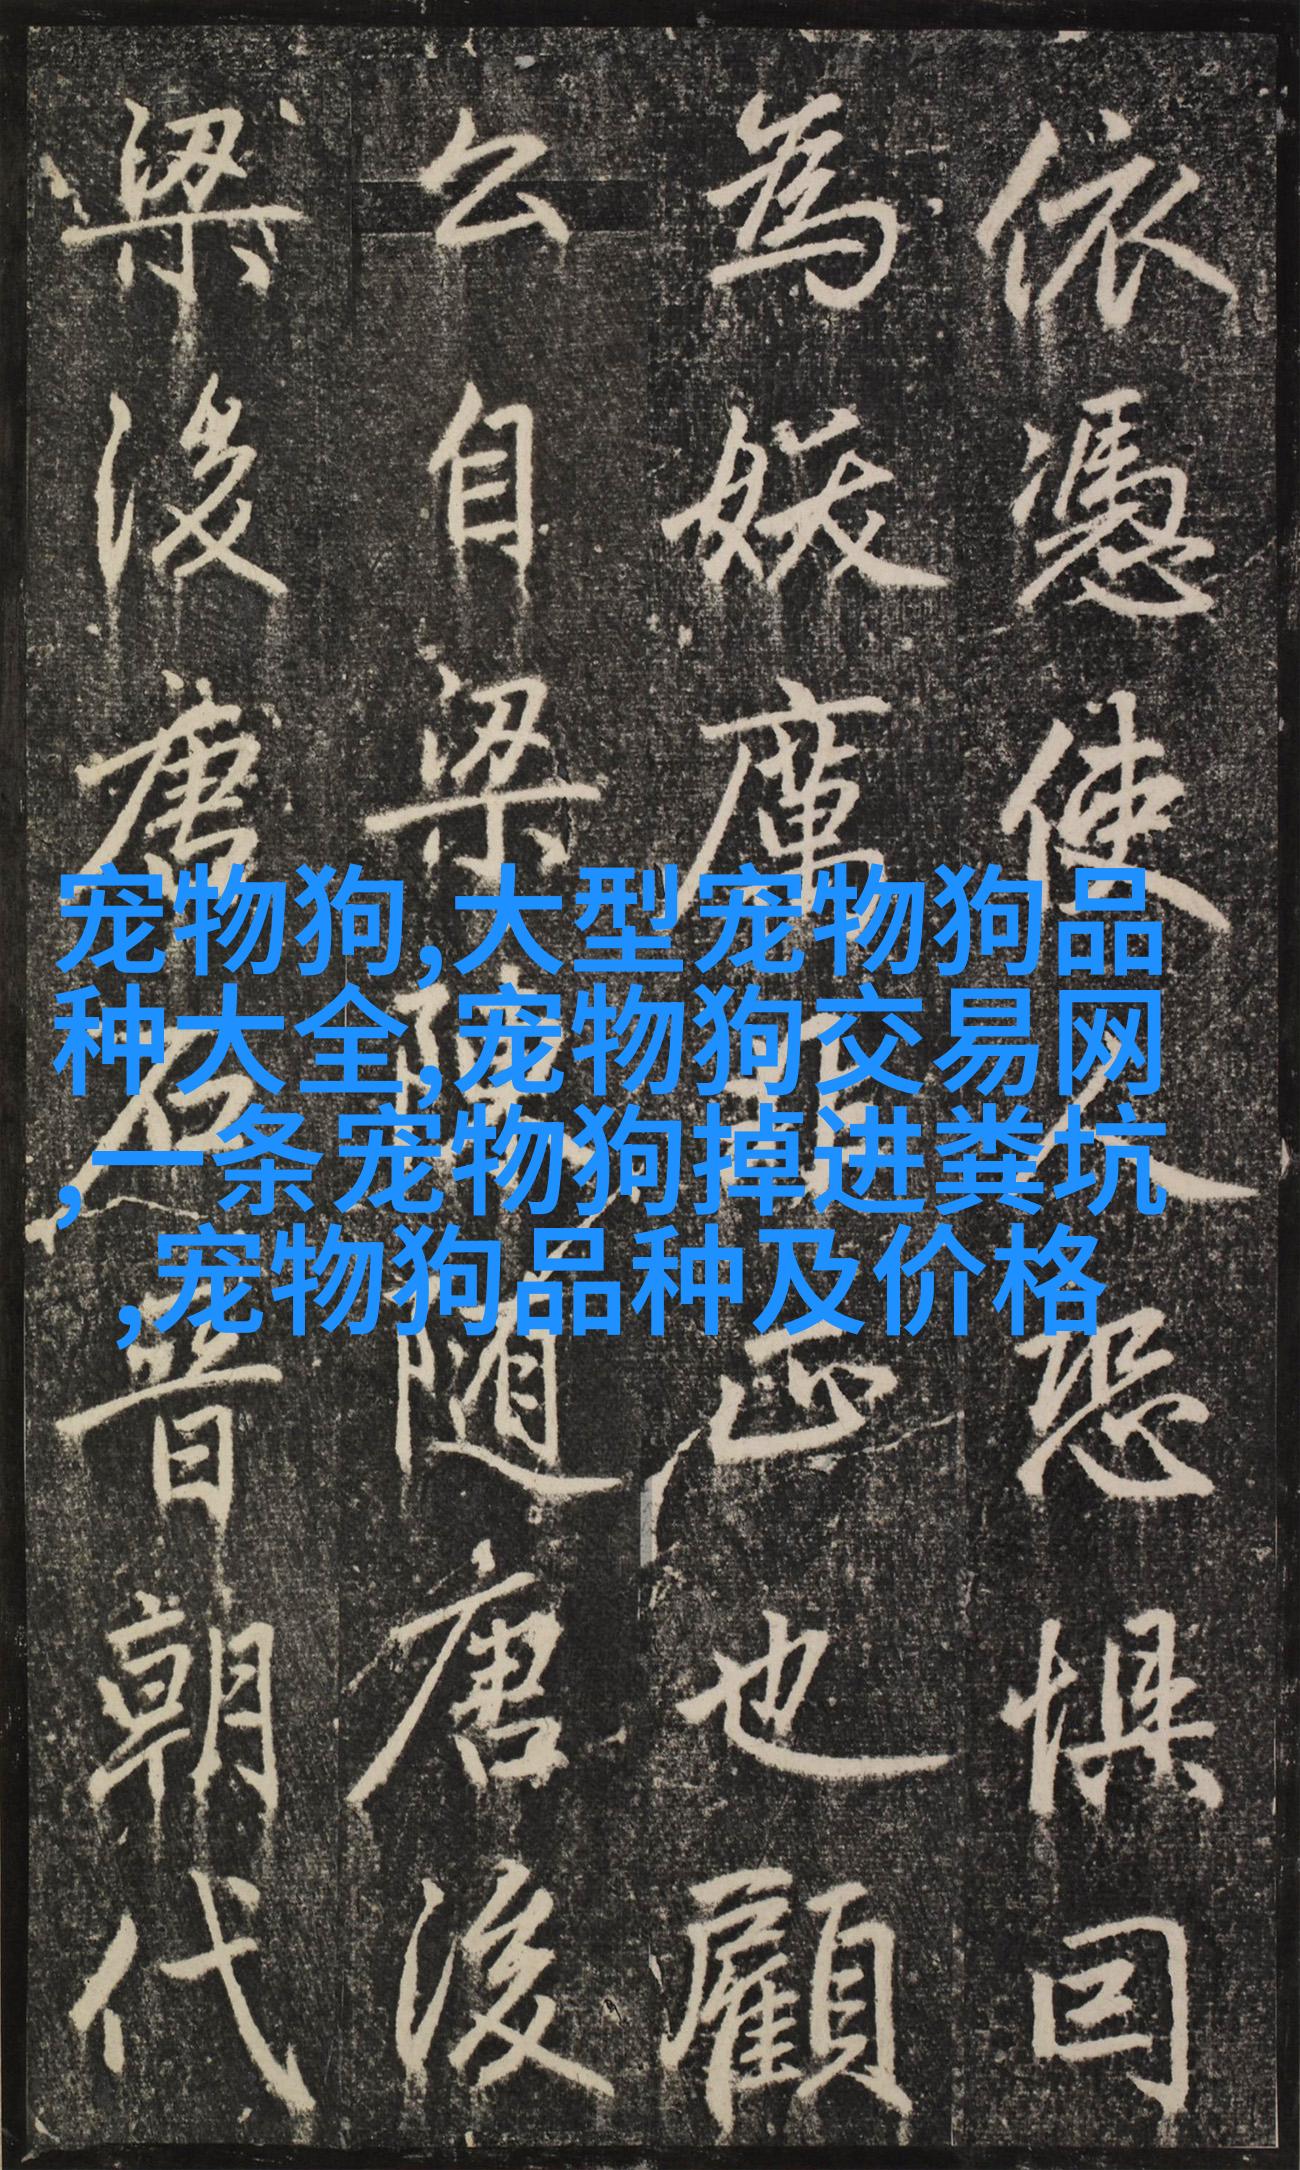 依憑使人恐懼囙
為妖厲非正也顧
公自梁陳随唐後
梁後唐石晉朝代
宠物狗,大型宠物狗品
种大全,宠物狗交易网
,一条宠物狗掉进粪坑
,宠物狗品种及价格